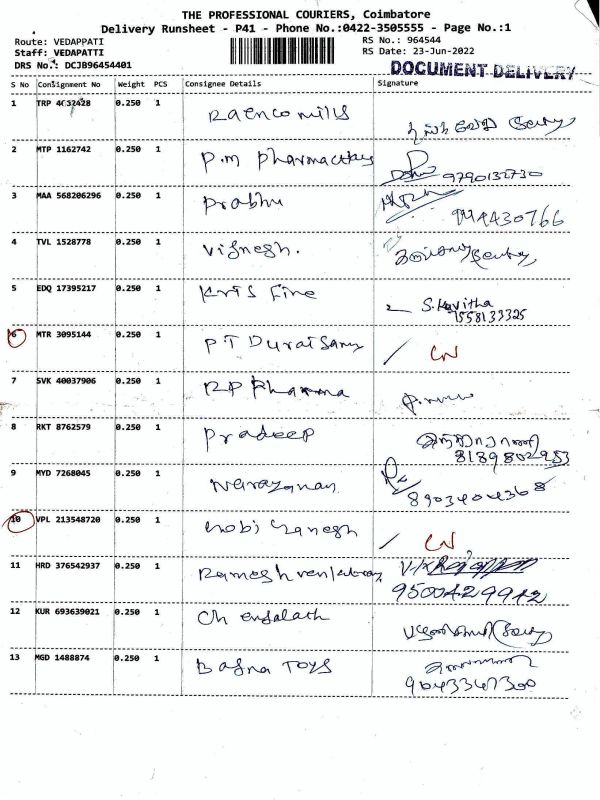 THE PROFESSIONAL COURIERS, Coimbatore
Delivery Runsheet - P41 - Phone No.:0422-3505555 - Page No.:1
Route: VEDAPPATI
RS No.: 964544
Staff: VEDAPATTI
RS Date: 23-Jun-2022
DRS No.: DCJB96454401
DOCUMENT DELIVERY
S No Consignment No Weight PCS Consignee Details Signature
1 TRP 0.250 1 Raenco mills
2 MTP 1162742 0.250 1 P.M Pharmacy
9790132730
3 MAA 568206296 0.250 1 Prabhu
9994430766
4 TVL 1528778 0.250 1 Vignegh.
5 EDQ 17395217 0.250 1 Kris Fire S.Kavitha
7558133325
6 MTR 3095144 0.250 1 P T Duraisamy / CN
7 SVK 40037906 0.250 1 RP Pharma
8 RKT 8762579 0.250 1 Pradeep
8189802953
9 MYD 7268045 0.250 1 Narayanan
8903404368
10 VPL 213548720 0.250 1 Ganegh / CN
11 HRD 376542937 0.250 1 Ramegh
9500429942
12 KUR 693639021 0.250 1 Ch
13 MGD 1488874 0.250 1 Bafna Toys
9043367300